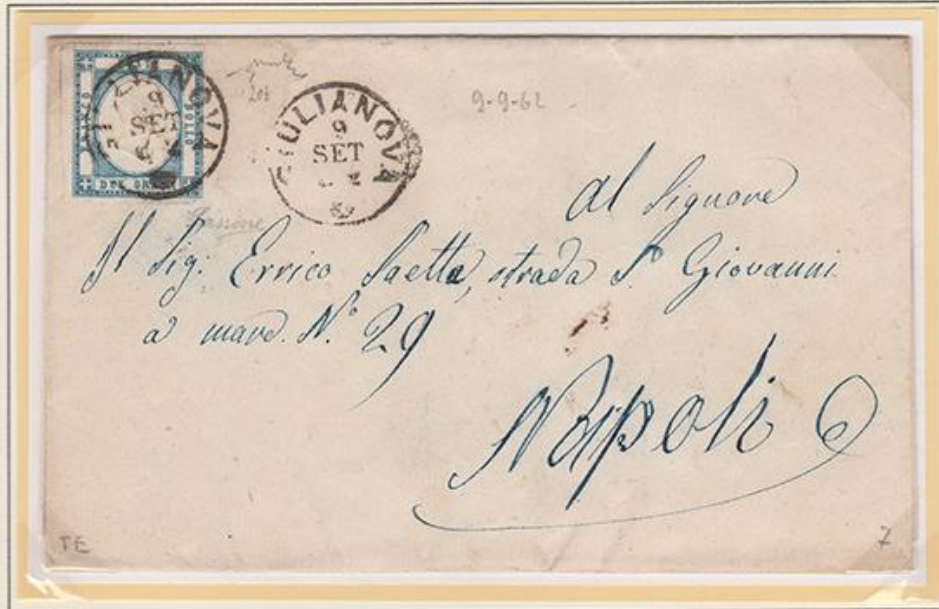 GIULIANOVA
9
SET
FRANCO
BOLLO
DUE GRANA
GIULIANOVA
9
SET
62
9-9-62
Al Signore
Il Sig: Errico Saetta, strada S. Giovanni
a mare. N.° 29
Napoli
TE
7